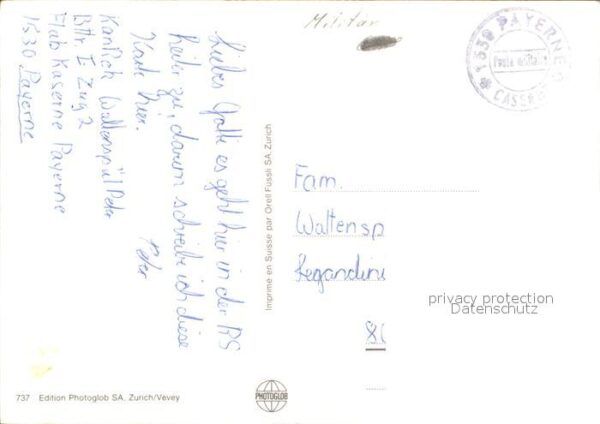 Militär
1530 PAYERNE
Poste militaire
CASERNE
Liebes Gotti es geht hier in der RS
heiter zu, darum schreibe ich diese
Karte hier.
Peter
KanRek Waltenspül Peter
Bttr I Zug 2
Flab Kaserne Payerne
1530 Payerne
Imprimé en Suisse par Orell Füssli SA, Zurich
Fam.
Waltensp
privacy protection
Datenschutz
737 Edition Photoglob SA, Zurich/Vevey
PHOTOGLOB